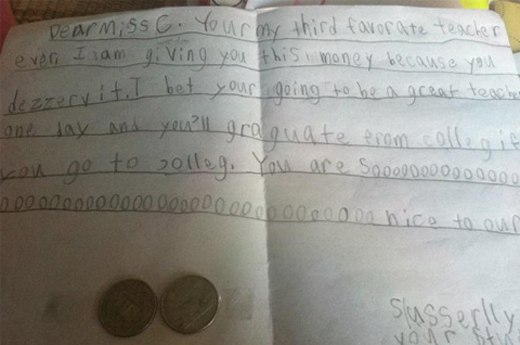 Dear Miss C. Your my third favorate teacher
ever. I am giving you this money because you
dezzerv it. I bet your going to be a great teache
one day and you'll graguate from colleg if
you go to colleg. You are sooooooooooooooo
oooooooooooooooooooooooooooooo nice to our
slusserlly
your stu